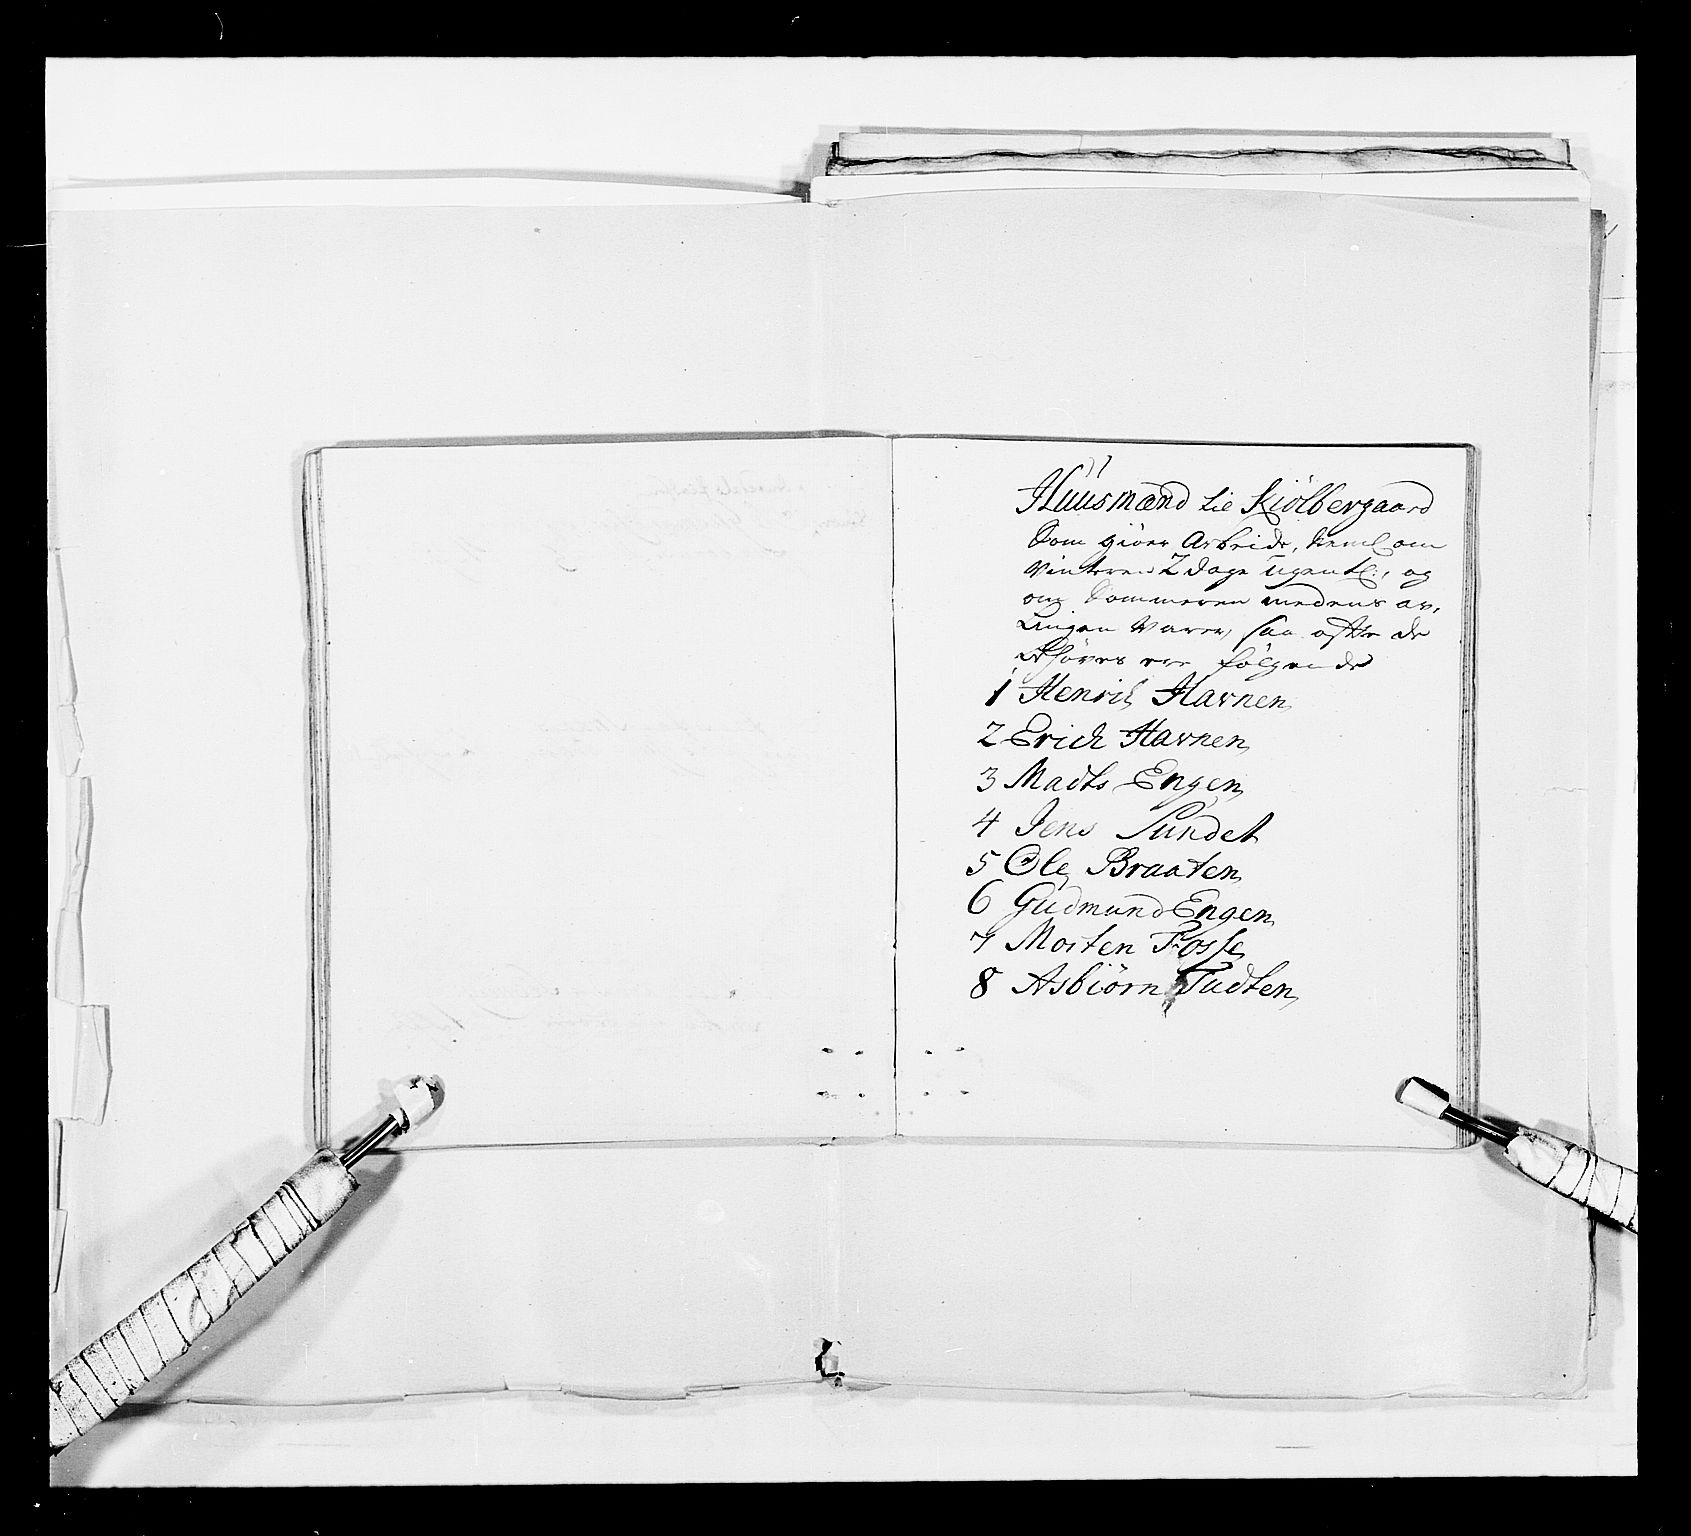 Huusmænd til Kiölbergaard
Som giöer Arbeide, Neml om
Vinteren 2 dage ugentl:, og
om Sommeren medens av,
Lingen Varer, saa ofte de
behöves ere følgende
1 Henrich Havnen
2 Erich Havnen
3 Madts Engen
4 Jens Sundet
5 Ole Braaten
6 Gudmund Engen
7 Morten Fosse
8 Asbiörn Tudten